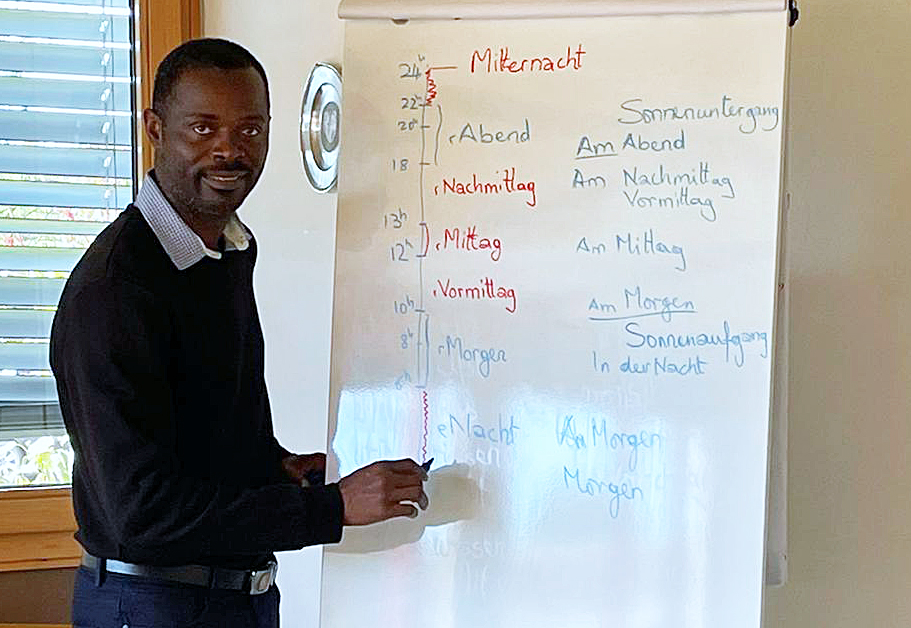 24h Mitternacht
22h
Sonnenuntergang
20h r Abend
Am Abend
18
r Nachmittag
Am Nachmittag
Vormittag
13h
r Mittag
Am Mittag
12h
r Vormittag
10h
Am Morgen
8h
r Morgen
Sonnenaufgang
In der Nacht
6h
e Nacht
Am Morgen
Morgen